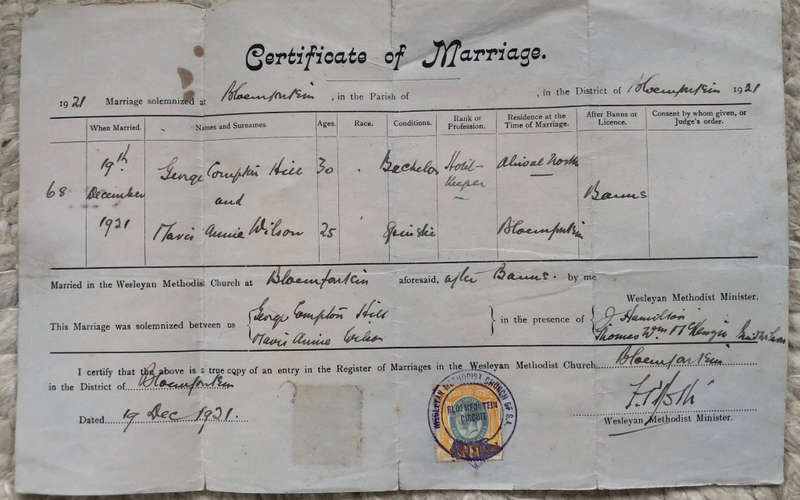 Certificate of Marriage.
1921 Marriage solemnized at Bloemfontein, in the Parish of , in the District of Bloemfontein 1921
When Married. Names and Surnames. Ages. Race. Conditions. Rank or Profession. Residence at the Time of Marriage. After Banns or Licence. Consent by whom given, or Judge's order.
68 19th December 1921 George Compton Hill 30 Bachelor Hotel-Keeper Aliwal North Banns
and
Mavis Annie Wilson 25 Spinster Bloemfontein
Married in the Wesleyan Methodist Church at Bloemfontein aforesaid, after Banns. by me
Wesleyan Methodist Minister.
This Marriage was solemnized between us George Compton Hill
Mavis Annie Wilson
in the presence of J Hamilton
Thomas Wm McKenzie
I certify that the above is a true copy of an entry in the Register of Marriages in the Wesleyan Methodist Church Bloemfontein
in the District of Bloemfontein
Dated 19 Dec 1921.
Wesleyan Methodist Minister.
WESLEYAN METHODIST CHURCH OF S.A.
BLOEMFONTEIN
CIRCUIT